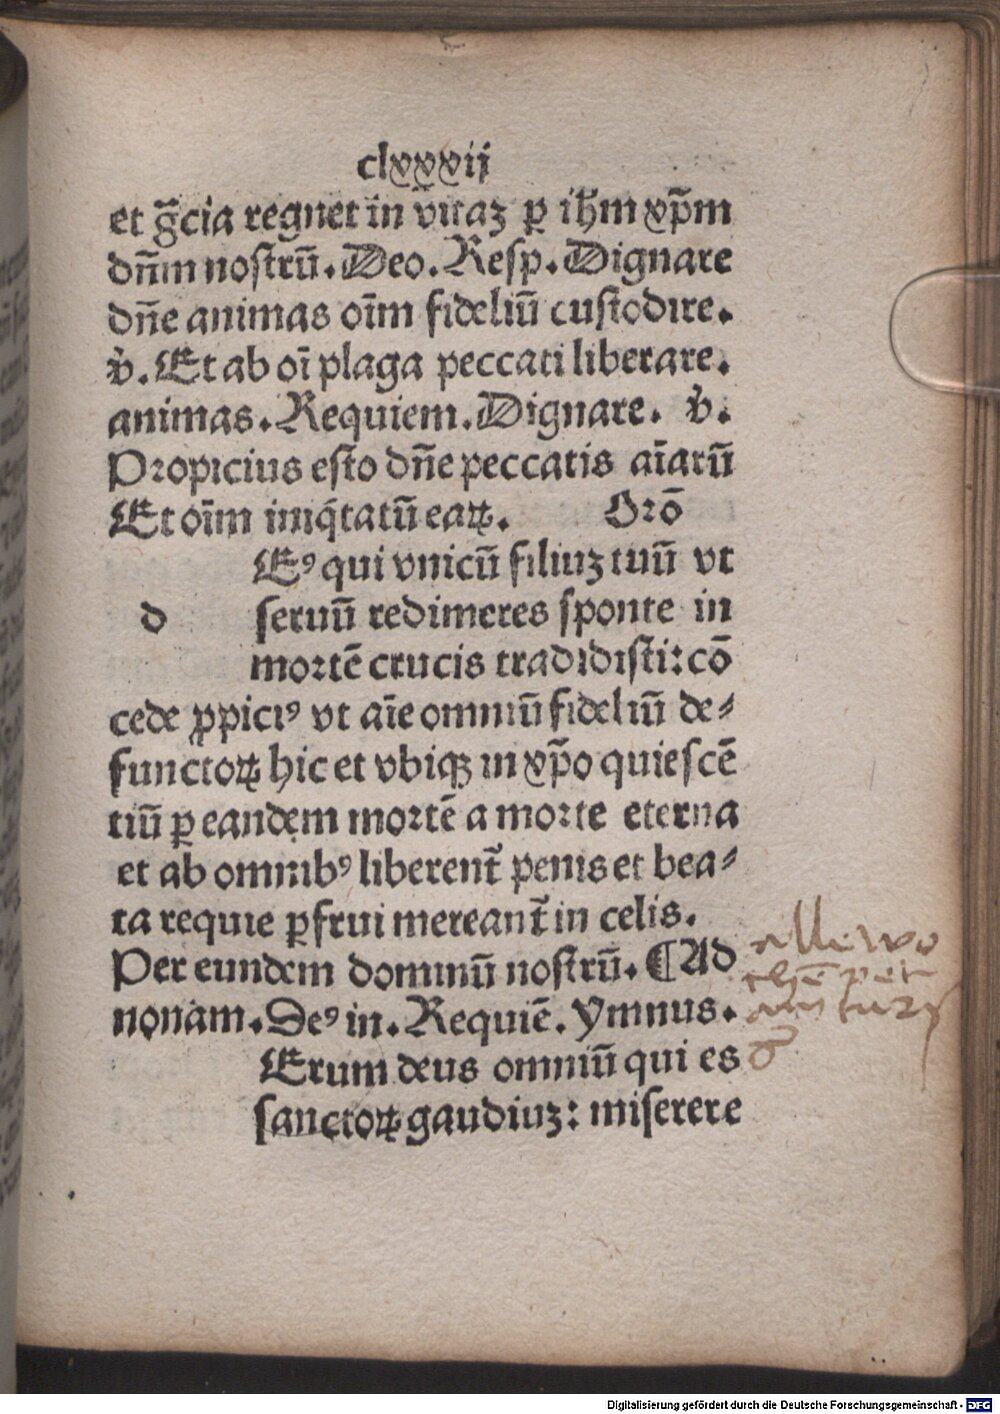 clxxxij
et gr̄cia regnet in vitaꝫ ꝑ ihm̄ xp̄m
dn̄m nostrū. Deo. Resp. Dignare
dn̄e animas oīm fideliū custodire.
ꝟ. Et ab oī plaga peccati liberare.
animas. Requiem. Dignare. ꝟ.
Propicius esto dn̄e peccatis aīarū
Et oīm iniq̇tatū eaꝝ. Orō
Eꝰ qui vnicū filiuꝫ tuū vt
d seruū redimeres sponte in
mortē crucis tradidisti: cō
cede ꝓpiciꝰ vt aīe omniū fideliū de⸗
functoꝝ hic et vbiqꝫ in xp̄o quiescē
tiū ꝑ eandem mortē a morte eterna
et ab omnibꝰ liberent̄ penis et bea⸗
ta requie ꝑfrui mereant̄ in celis.
Per eundem dominū nostrū. ¶ Ad
nonam. Deꝰ in. Requiē. Ymnus.
Erum deus omniū qui es
sanctoꝝ gaudiuꝫ: miserere
Digitalisierung gefördert durch die Deutsche Forschungsgemeinschaft - DFG